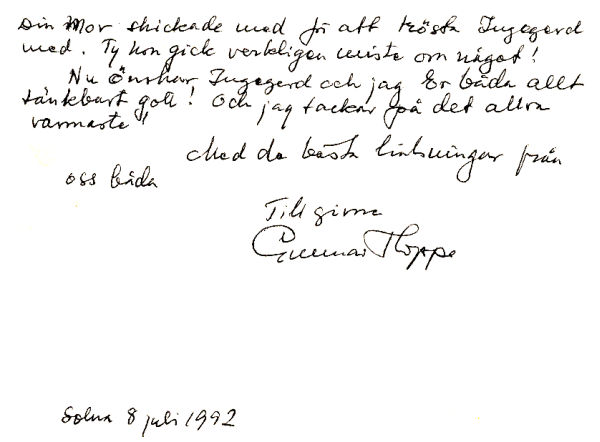 Din Mor skickade med för att trösta Ingegerd
med. Ty hon gick verkligen miste om något!
Nu önskar Ingegerd och jag Er båda allt
tänkbart gott! Och jag tackar på det allra
varmaste!
Med de bästa hälsningar från
oss båda
Tillgivne
Gunnar Hoppe
Solna 8 juli 1992